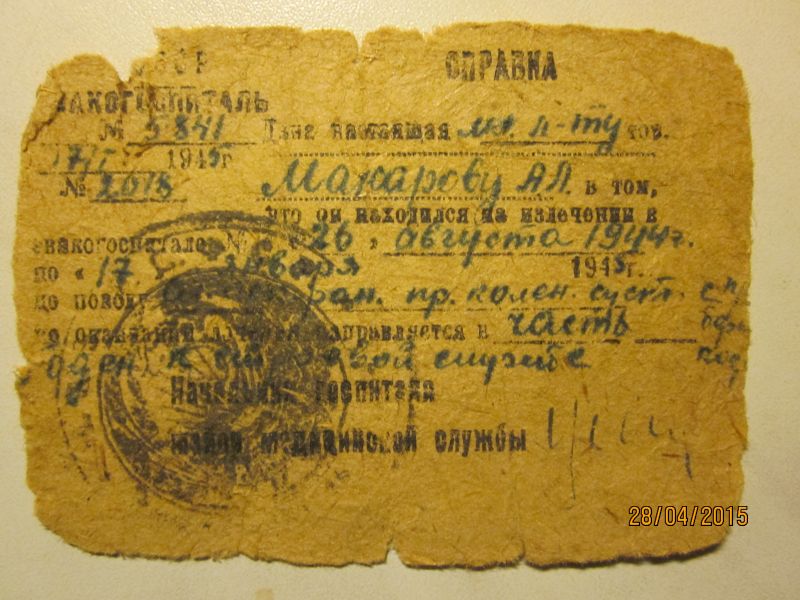 СССР СПРАВКА
ВАКОГОСПИТАЛЬ
№ 5841 Дана настоящая мл. л-ту тов.
17/I 1945г
№ 2018 Макарову А.П. в том,
что он находился на излечении в
эвакогоспитале № с « 26 » августа 1944 г.
по « 17 » января 1945г.
по поводу ран. пр. колен. суст. с п
по окончании лечения направляется в часть
годен к строевой службе
Начальник госпиталя
майор медицинской службы
28/04/2015